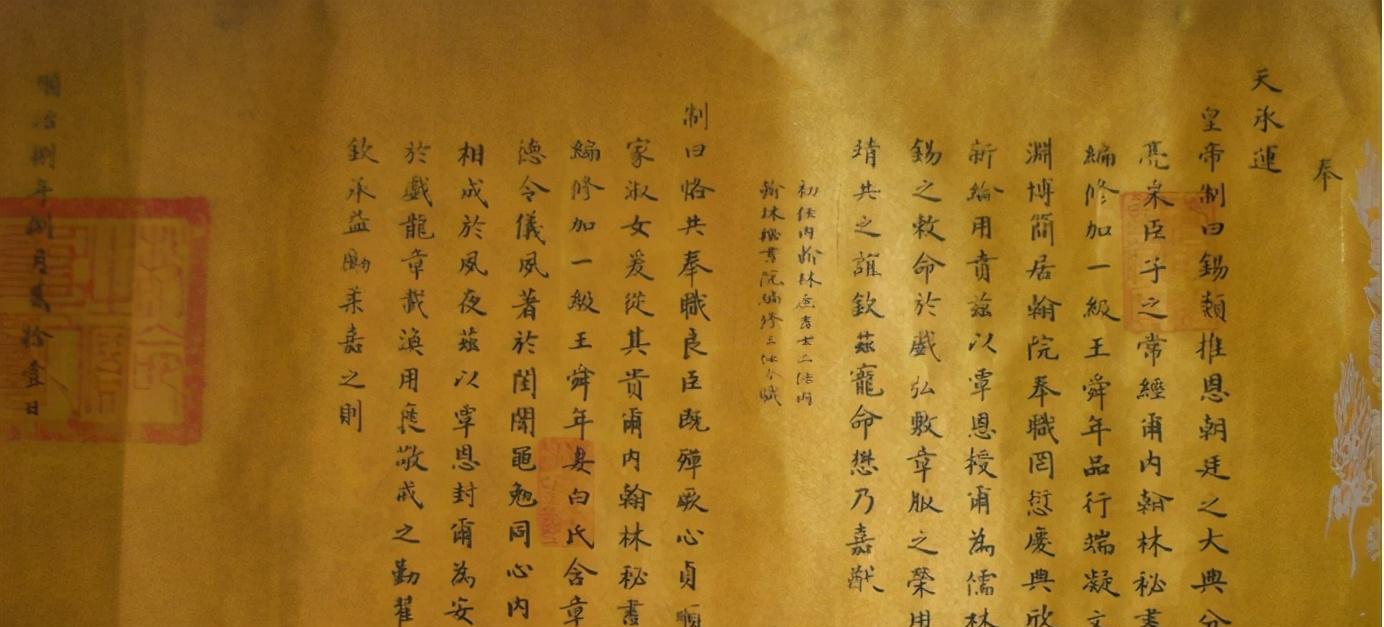 奉
天承運
皇帝制曰錫類推恩朝廷之大典分
亮采臣子之常經爾內翰林秘書
編修加一級王舜年品行端凝文
淵博簡居翰院奉職罔愆慶典欣
新綸用賁茲以覃恩授爾為儒林
錫之敕命於戲弘敷章服之榮用
靖共之誼欽茲寵命懋乃嘉猷
初任內翰林庶吉士二任內
翰林秘書院編修三任今職
制曰恪共奉職良臣既殫厥心貞順
家淑女爰從其貴爾內翰林秘書
編修加一級王舜年妻白氏含章
德令儀夙著於閨闈黽勉同心內
相成於夙夜茲以覃恩封爾為安
於戲龍章載渙用庶敬戒之勤翟
欽承益勵柔嘉之則
順治捌年捌月貳拾壹日